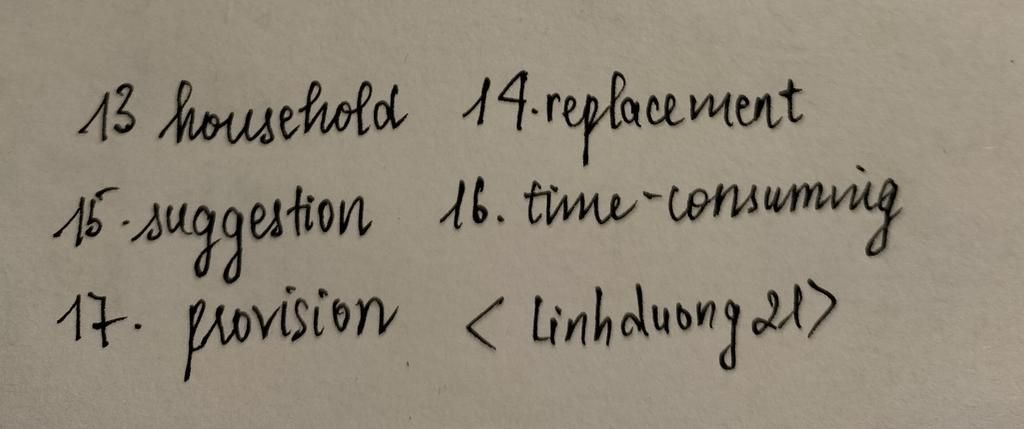 13 household 14. replacement
15. suggestion 16. time-consuming
17. provision < linhduong21>